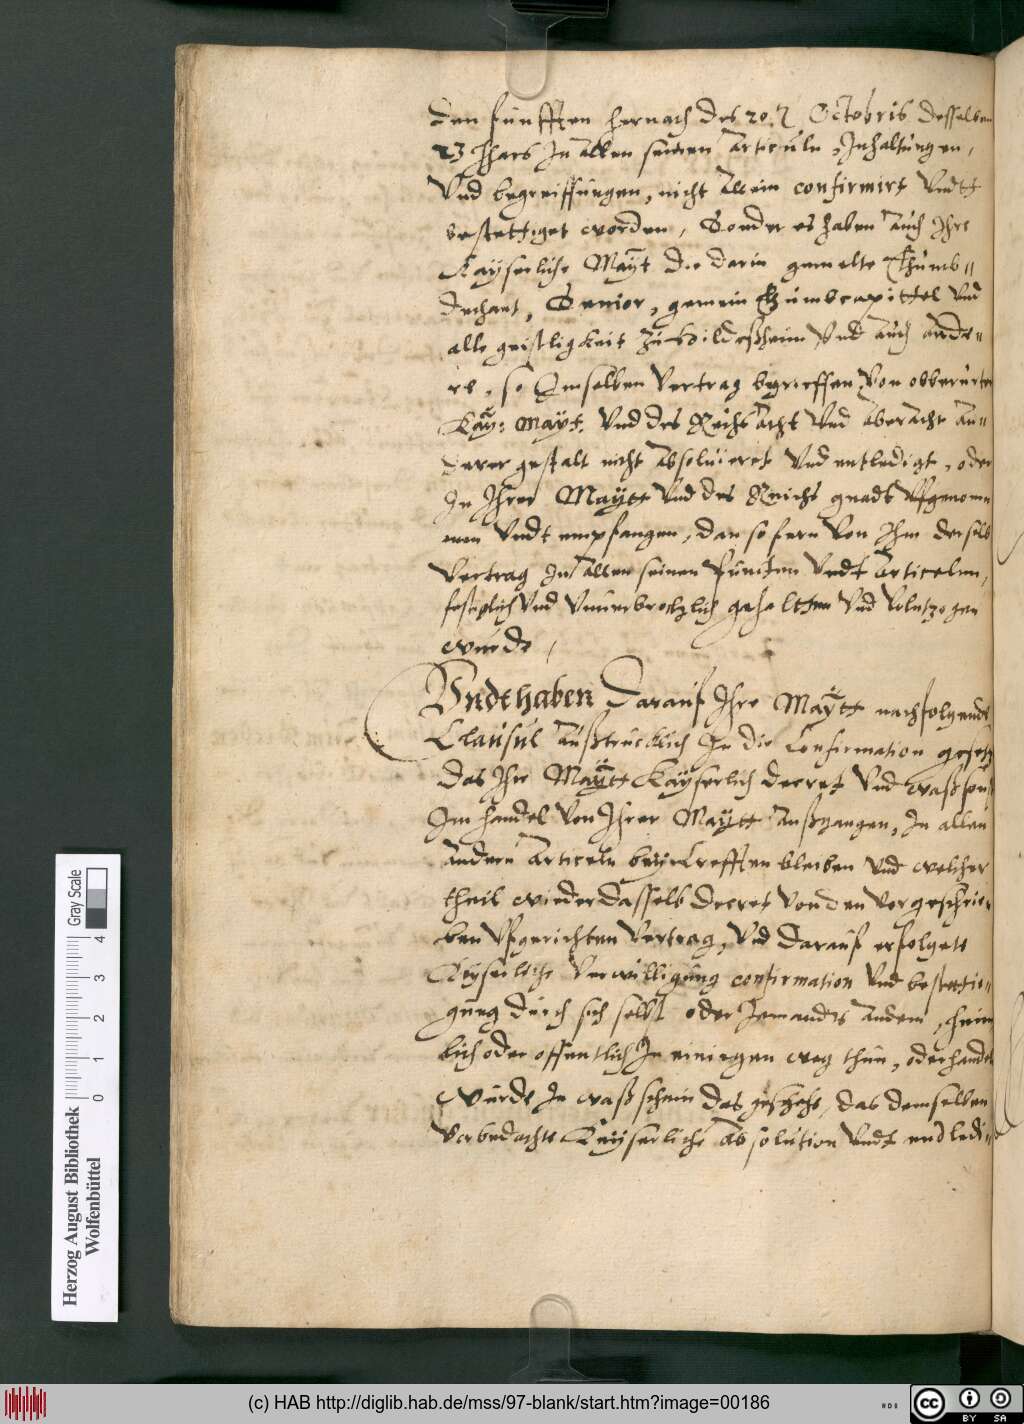 den funfften hernach des 20. Octobris desselben
23 Jhars In allen seinen Articuln, Inhaltungen,
Vnd begreiffungen, nicht allein confirmirt Vndtt
bestettiget worden, Sonder es haben auch Ihre
Kayserliche Maytt die darin gemelte Thumb=
dechant, Senior, gemein Thumbcapittel Vnd
alle geistligkeit zu Hildeßheim Vnd auch ande=
re, so Imselben Vertrag begrieffen Von obberurter
Kay: Mayt. Vnd des Reichs Acht Vnd aberacht an=
derer gestalt nicht absoluieret Vnd entledigt, oder
In Ihrer Maytt Vnd des Reichs gnadt Vfgenom
men Vndt empfangen, dan so fern Von Ihm derselb
Vertrag In allen seinen Puncten Vndt Articelen,
festiglich Vnd Vnuerbrochlich gehaltten Vnd Volnzogen
wurde,
Vndt haben Darauf Ihre Maytt nachfolgende
Clausul außtrucklich In die Confirmation gesetz
das Ihr Maytt Kayserlich decret Vnd waß sonst
Im handel Von Ihrer Maytt außgangen, In allen
andern Articeln bey Crefften bleiben Vnd welcher
theil wieder dasselb decret Von den Vorgeschrie=
ben Vfgerichten Vertrag, Vnd darauf erfolgete
Keyserliche Verwilligung confirmation Vnd bestetti=
gung durch sich selbst oder Jemandts andern, heim
lich oder offentlich In einigen weg thun, oder handeln
wurde In waß schein das geschehe, das demselben
Vorbedachte Keyserliche absolution Vndt endledi=
Herzog August Bibliothek
Wolfenbüttel
0 1 2 3 4
Gray Scale
(c) HAB http://diglib.hab.de/mss/97-blank/start.htm?image=00186
cc BY SA